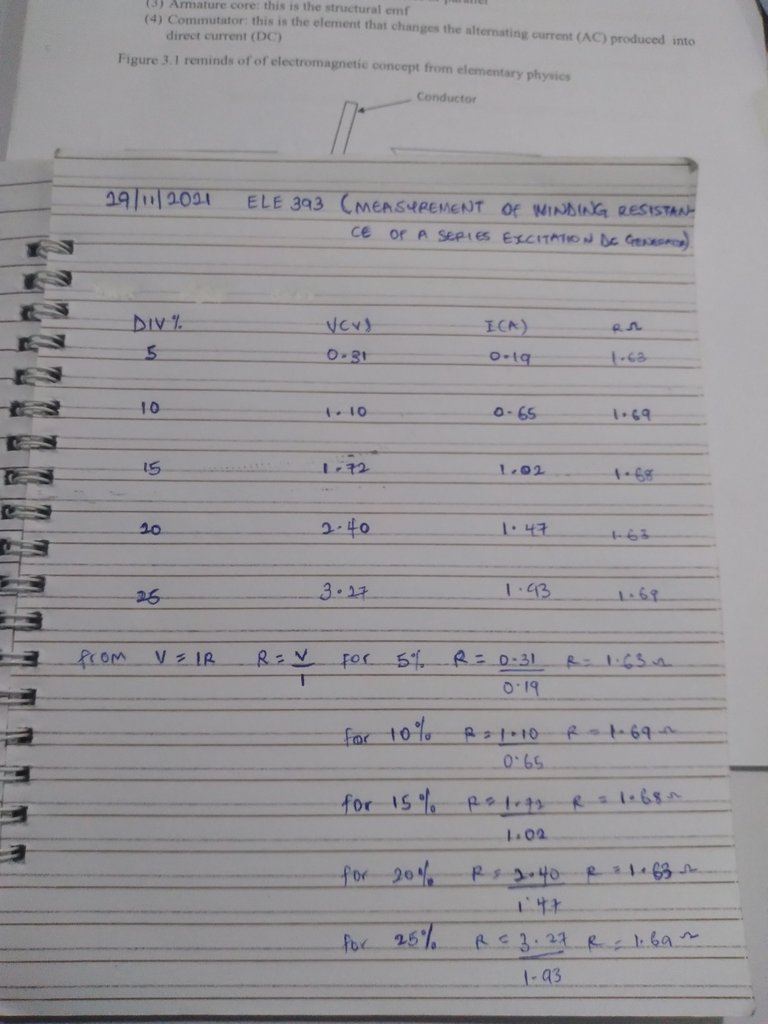 (3) Armature core: this is the structural emf
(4) Commutator: this is the element that changes the alternating current (AC) produced into
direct current (DC)
Figure 3.1 reminds of of electromagnetic concept from elementary physics
Conductor
29/11/2021 ELE 393 (MEASUREMENT OF WINDING RESISTAN-
CE OF A SERIES EXCITATION DC GENERATOR)
DIV % V(V) I(A) R Ω
5 0.31 0.19 1.63
10 1.10 0.65 1.69
15 1.72 1.02 1.68
20 2.40 1.47 1.63
25 3.27 1.93 1.69
from V = IR R = V/I for 5% R = 0.31/0.19 R = 1.63Ω
for 10% R = 1.10/0.65 R = 1.69Ω
for 15% R = 1.72/1.02 R = 1.68Ω
for 20% R = 2.40/1.47 R = 1.63Ω
for 25% R = 3.27/1.93 R = 1.69Ω